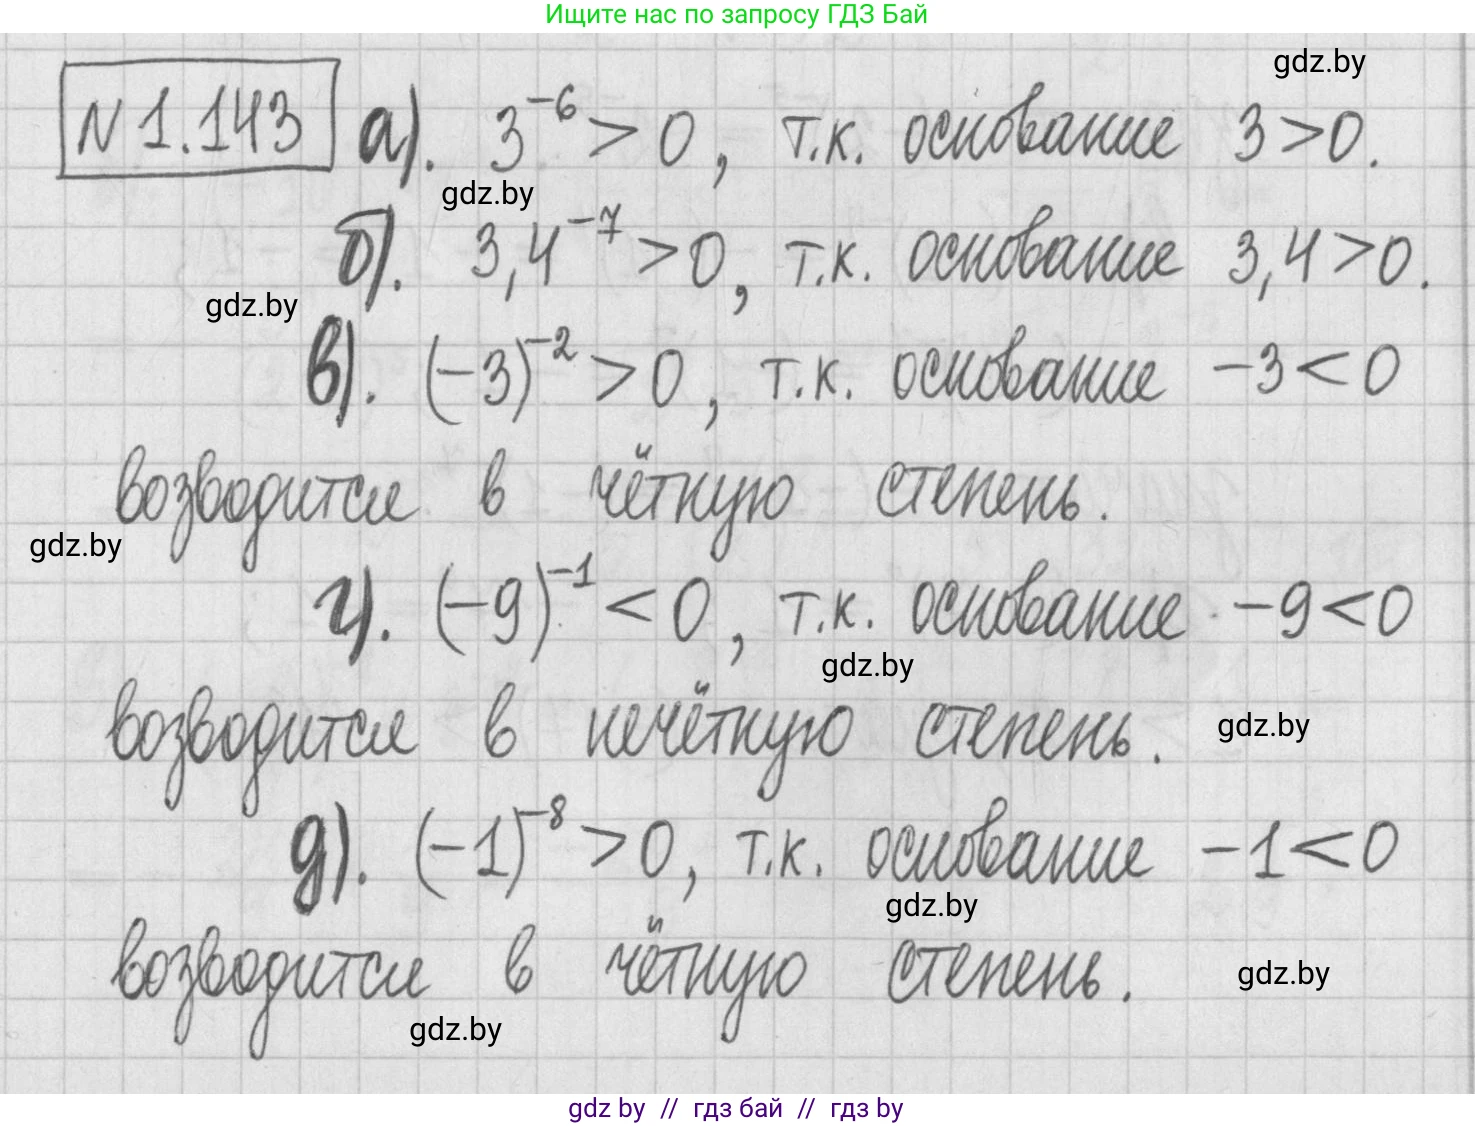 Ищите нас по запросу ГДЗ Бай
gdz.by
N 1.143 а). 3⁻⁶ > 0, т.к. основание 3 > 0.
gdz.by
б). 3,4⁻⁷ > 0, т.к. основание 3,4 > 0.
gdz.by
в). (-3)⁻² > 0, т.к. основание -3 < 0
возводится в чётную степень.
gdz.by
г). (-9)⁻¹ < 0, т.к. основание -9 < 0
gdz.by
возводится в нечётную степень.
gdz.by
д). (-1)⁻⁸ > 0, т.к. основание -1 < 0
gdz.by
возводится в чётную степень.
gdz.by
gdz.by
gdz by // гдз бай // гдз by